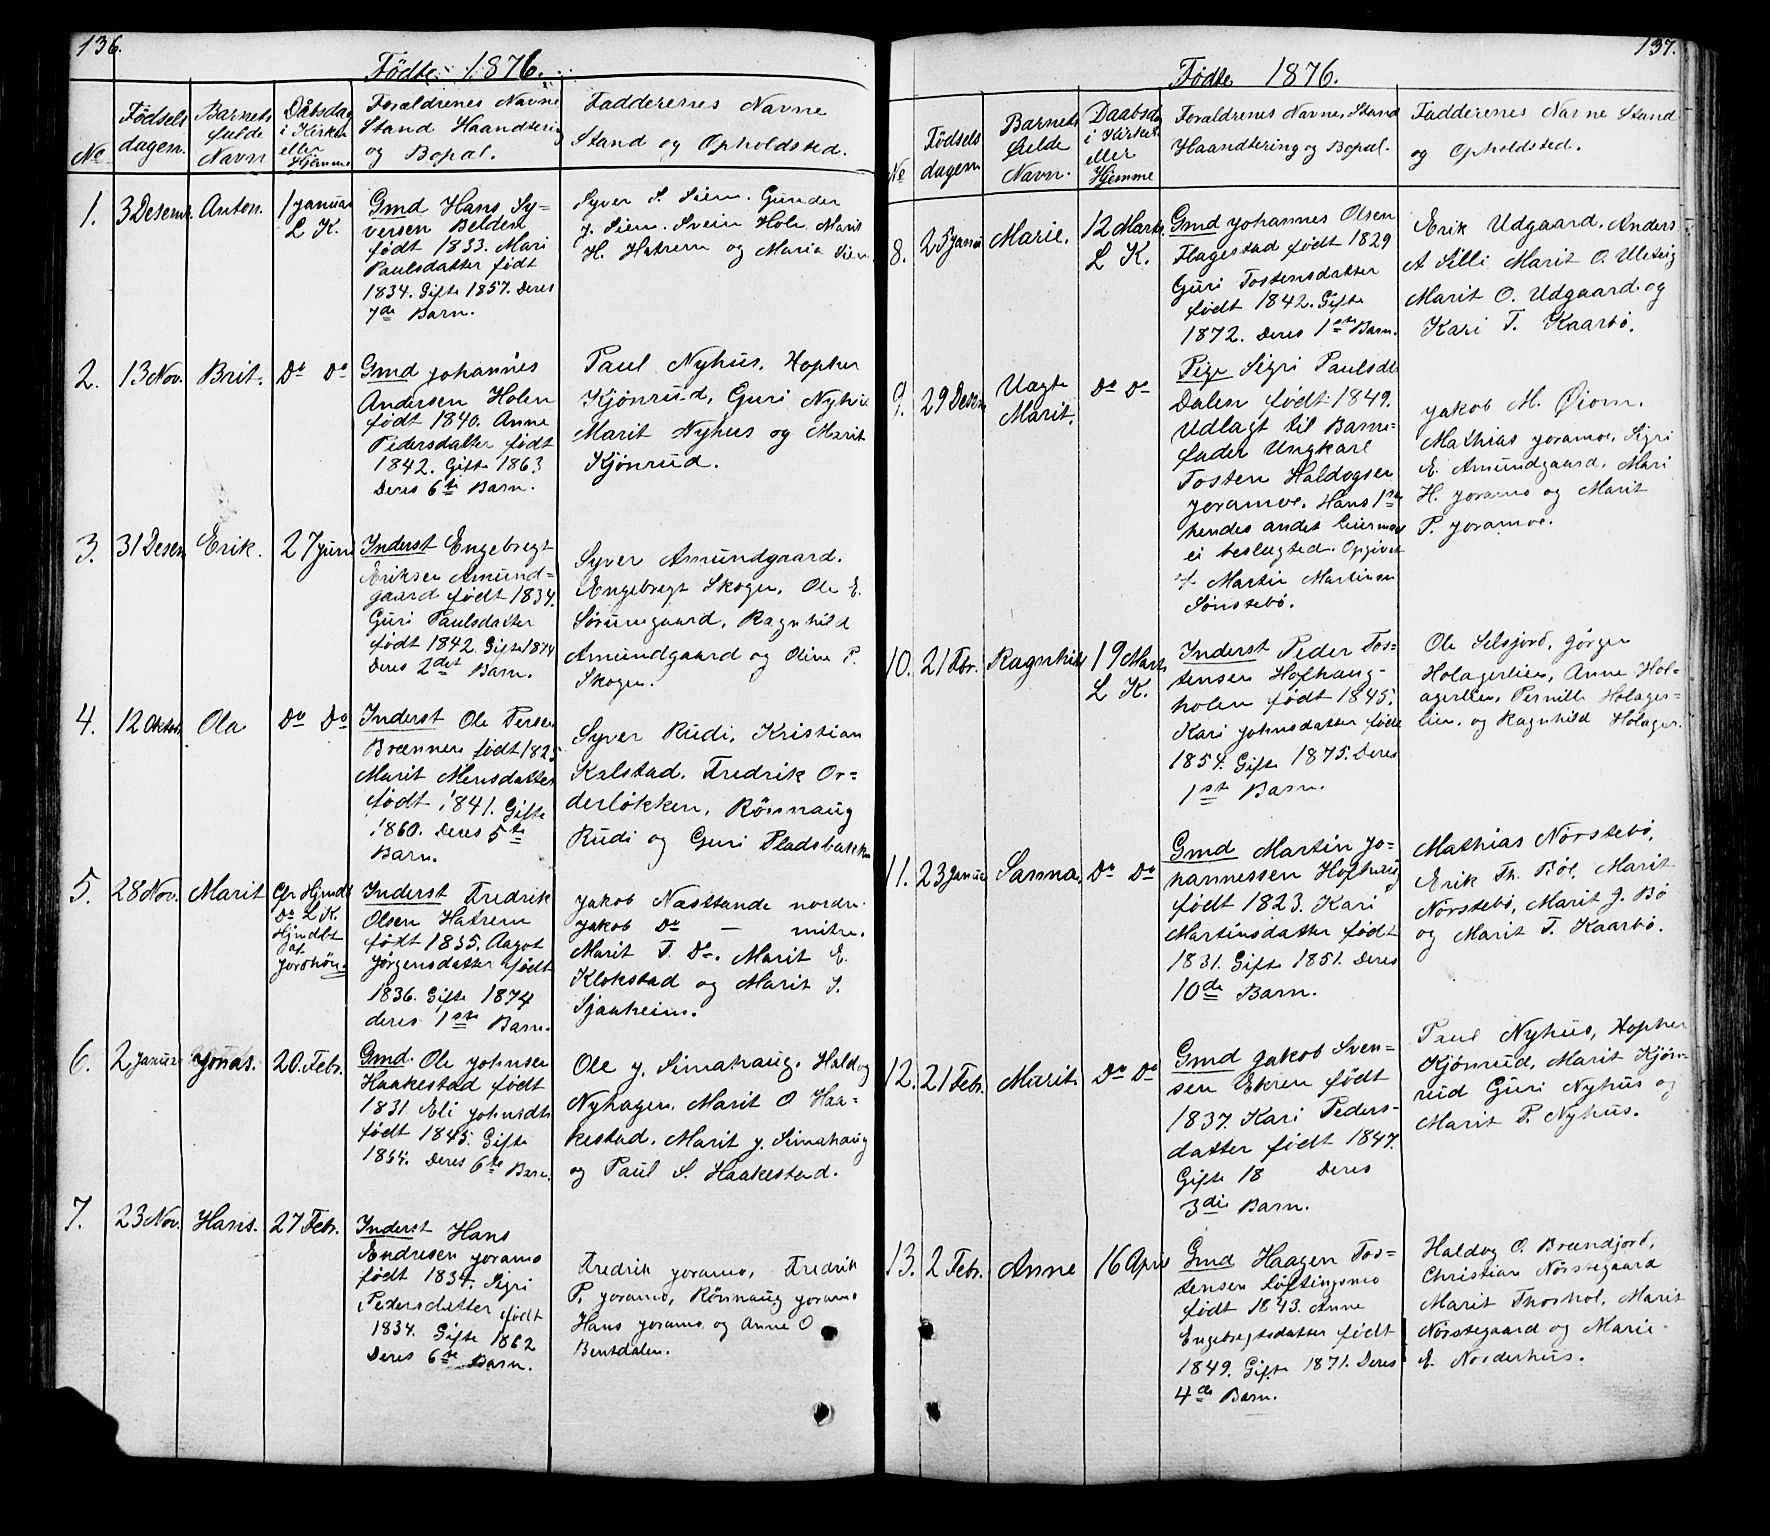 136.
Födte 1876.
No
Födsels dagen.
Barnets fulde Navn
Dåbsdag i Kirken eller Hjemme
Forældrenes Navne Stand Haandtering og Bopæl.
Faddererenes Navne Stand og Opholdsted.
1. 3 Desemr. Anton. 1 januar L K.
Gmd Hans Sy-
versen Belden
født 1833. Mari
Paulsdatter født
1834. Gifte 1857. Deres
7de Barn.
Syver S. Siem. Gunder
J. Siem. Svein Hole Marit
H. Hatrem og Maria Siem
2. 13 Nov. Brit. Do Do
Gmd johannes
Andersen Holen
født 1840. Anne
Pedersdatter født
1842. Gifte 1863
Deres 6te Barn.
Paul Nyhus, Hopker
Kjönrud, Guri Nyhus
Marit Nyhus og Marit
Kjönrud.
3. 31 Desem Erik. 27 Janu
Inderst Engebregt
Eriksen Amund-
gaard født 1834.
Guri Paulsdatter
født 1842. Gifte 1874
Deres 2det Barn.
Syver Amundgaard.
Engebregt Skogen, Ole E.
Sörumgaard, Ragnhild
Amundgaard og Oline P.
Skogen.
4. 12 Oktob. Ola Do Do
Inderst Ole Persen
Brænnen født 1825
Marit Mensdatter
født 1841. Gifte
1860. Deres 5te
Barn.
Syver Rudi, Kristian
Kalstad. Fredrik Or-
derlökken, Rönnaug
Rudi og Guri Pladsbakken
5. 28 Nov. Marit
Gfr Hjmdt
Do L K.
Hjmdbt
af
Jorshön.
Inderst Fredrik
Olsen Hatrem
født 1835. Aagot
Jörgensdatter født
1836. Gifte 1874
deres 1ste Barn.
Jakob Næstlande nordre.
Jakob Do — mitre.
Marit T. Do. Marit E.
Klokstad og Marit S.
Sjaaheim.
6. 2 Januar Jonas. 20. Febr.
Gmd. Ole Johnsen
Haakestad født
1831. Eli johnsdtr
født 1845. Gifte
1864. Deres 6te Barn.
Ole J. Simahaug. Haldog
Nyhagen. Marit O Haa-
kestad. Marit J. Simahaug
og Paul S. Haakestad.
7. 23 Nov. Hans. 27 Febr.
Inderst Hans
Endresen joramo
født 1834. Sigri
Pedersdatter født
1834. Gifte 1862
Deres 6te Barn.
Fredrik joramo, Fredrik
P. joramo, Rönnaug joramo
Hans joramo og Anne O
Bentdalen.
137.
Födte 1876.
No
Födsels dagen
Barnets fulde Navn.
Daabsdag i Kirken eller Hjemme
Forældrenes Navne, Stand Haandtering og Bopæl.
Fadderenes Navne Stand og Opholdsted.
8. 25 Janua Marie. 12 Marts L K.
Gmd johannes Olsen
Flagestad født 1829
Guri Tostensdatter
født 1842. Gifte
1872. Deres 1ste Barn.
Erik Udgaard, Anders
A Silli Marit O. Ulsteig
Marit O. Udgaard og
Kari T. Kaarbö.
9. 29 Desem Uægte Marit. Do Do
Pige Sigri Paulsdt
Dalen født 1849.
Udlagt til Barne-
fader Ungkarl
Tosten Haldogsen
joramoe. Hans 1ste
hendes andet Leiermaal
ei beslægted. Opgivet
af Martin Martinsen
Sönstebö.
Jakob M. Øiom.
Mathias joramoe, Sigri
E. Amundgaard, Mari
H. joramo og Marit
P. joramoe.
10. 21 Febr. Ragnhild 19 Marts L K.
Inderst Peder Tos-
tensen Hofhaug-
holen født 1845.
Kari johnsdatter føde
1854. Gifte 1875. Deres
1ste Barn.
Ole Selsjord, Jörgen
Holagerlien, Anne Hol-
agerlien, Pernille Holager-
lien, og Ragnhild Holager.
11. 23 Januar Sanna. Do Do
Gmd Martin Jo-
hannessen Hofhaug
født 1823. Kari
Martinsdatter født
1831. Gifte 1851. Deres
10de Barn.
Mathias Nörstebö,
Erik Th. Böl. Marit
Nörstebö, Marit J. Bö
og Marit T. Kaarbö.
12. 21 Febr. Marit. Do Do
Gmd Jakob Sven-
sen Ekren født
1837. Kari Peders-
datter født 1847.
Gifte 18 Deres
3die Barn.
Paul Nyhus, Hopker
Kjönrud, Marit Kjön-
rud Guri Nyhus og
Marit P. Nyhus.
13. 2 Febr. Anne 16 April
Gmd Haagen Tos-
tensen Löftingsmo
født 1843. Anne
Engebregtsdatter født
1849. Gifte 1871. Deres
4de Barn.
Haldog O. Brændjord,
Christian Nörstegaard
Marit Thorhol, Marit
Nörstegaard og Marie
E. Norderhus.